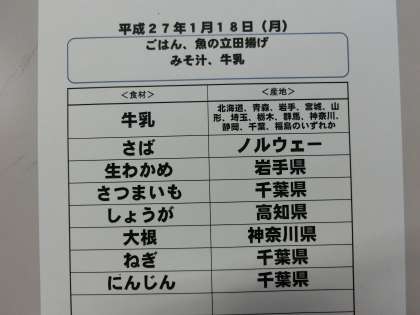 平成27年1月18日（月）
ごはん、魚の立田揚げ
みそ汁、牛乳
＜食材＞ ＜産地＞
牛乳 北海道、青森、岩手、宮城、山
形、埼玉、栃木、群馬、神奈川、
静岡、千葉、福島のいずれか
さば ノルウェー
生わかめ 岩手県
さつまいも 千葉県
しょうが 高知県
大根 神奈川県
ねぎ 千葉県
にんじん 千葉県